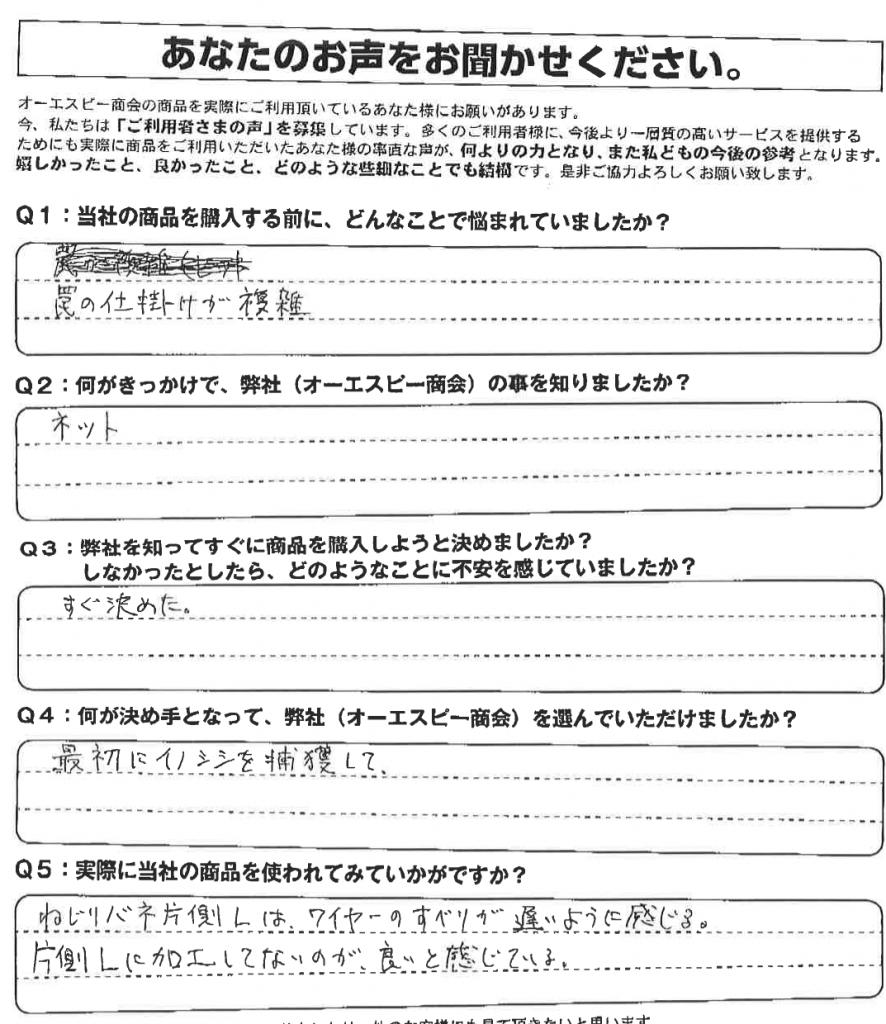 あなたのお声をお聞かせください。
オーエスピー商会の商品を実際にご利用頂いているあなた様にお願いがあります。
今、私たちは「ご利用者さまの声」を募集しています。多くのご利用者様に、今後より一層質の高いサービスを提供する
ためにも実際に商品をご利用いただいたあなた様の率直な声が、何よりの力となり、また私どもの今後の参考となります。
嬉しかったこと、良かったこと、どのような些細なことでも結構です。是非ご協力よろしくお願い致します。
Q1：当社の商品を購入する前に、どんなことで悩まれていましたか？
罠の仕掛けが複雑
Q2：何がきっかけで、弊社（オーエスピー商会）の事を知りましたか？
ネット
Q3：弊社を知ってすぐに商品を購入しようと決めましたか？
しなかったとしたら、どのようなことに不安を感じていましたか？
すぐ決めた。
Q4：何が決め手となって、弊社（オーエスピー商会）を選んでいただけましたか？
最初にイノシシを捕獲して、
Q5：実際に当社の商品を使われてみていかがですか？
ねじりバネ片側Lは、ワイヤーのすべりが遅いように感じる。
片側Lに加工してないのが、良いと感じている。